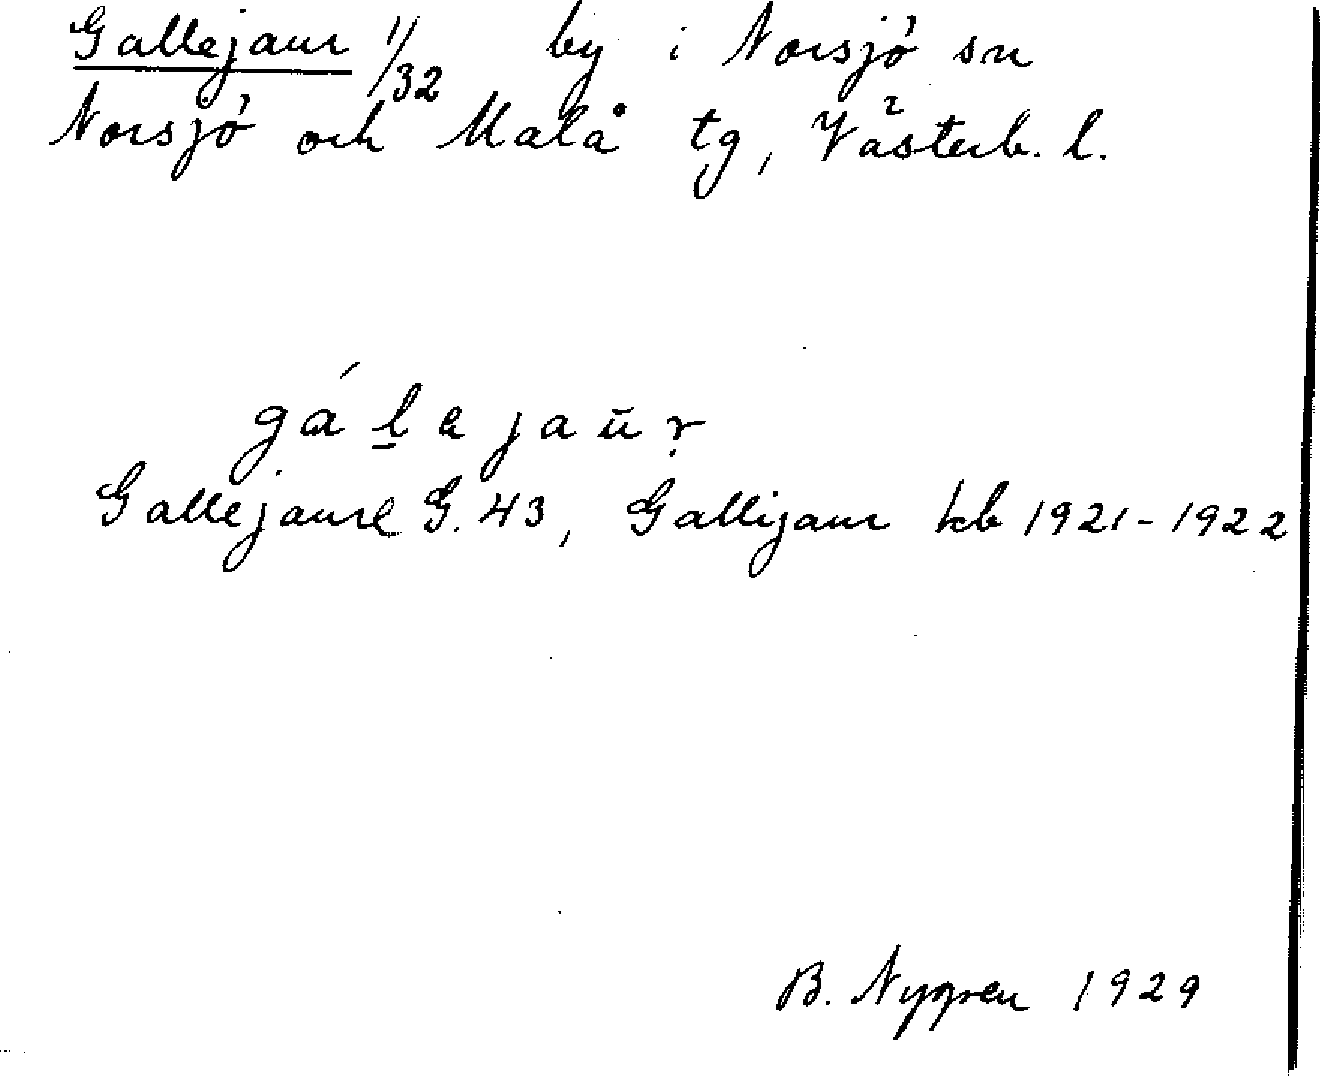 Gallejaur 11/32 by i Norsjö sn
Norsjö och Malå tg, Västerb. l.
gá l̲ e ja ū ṛ
Gallejaure G. 43, Gallijaur kb 1921-1922
B. Nygren 1929